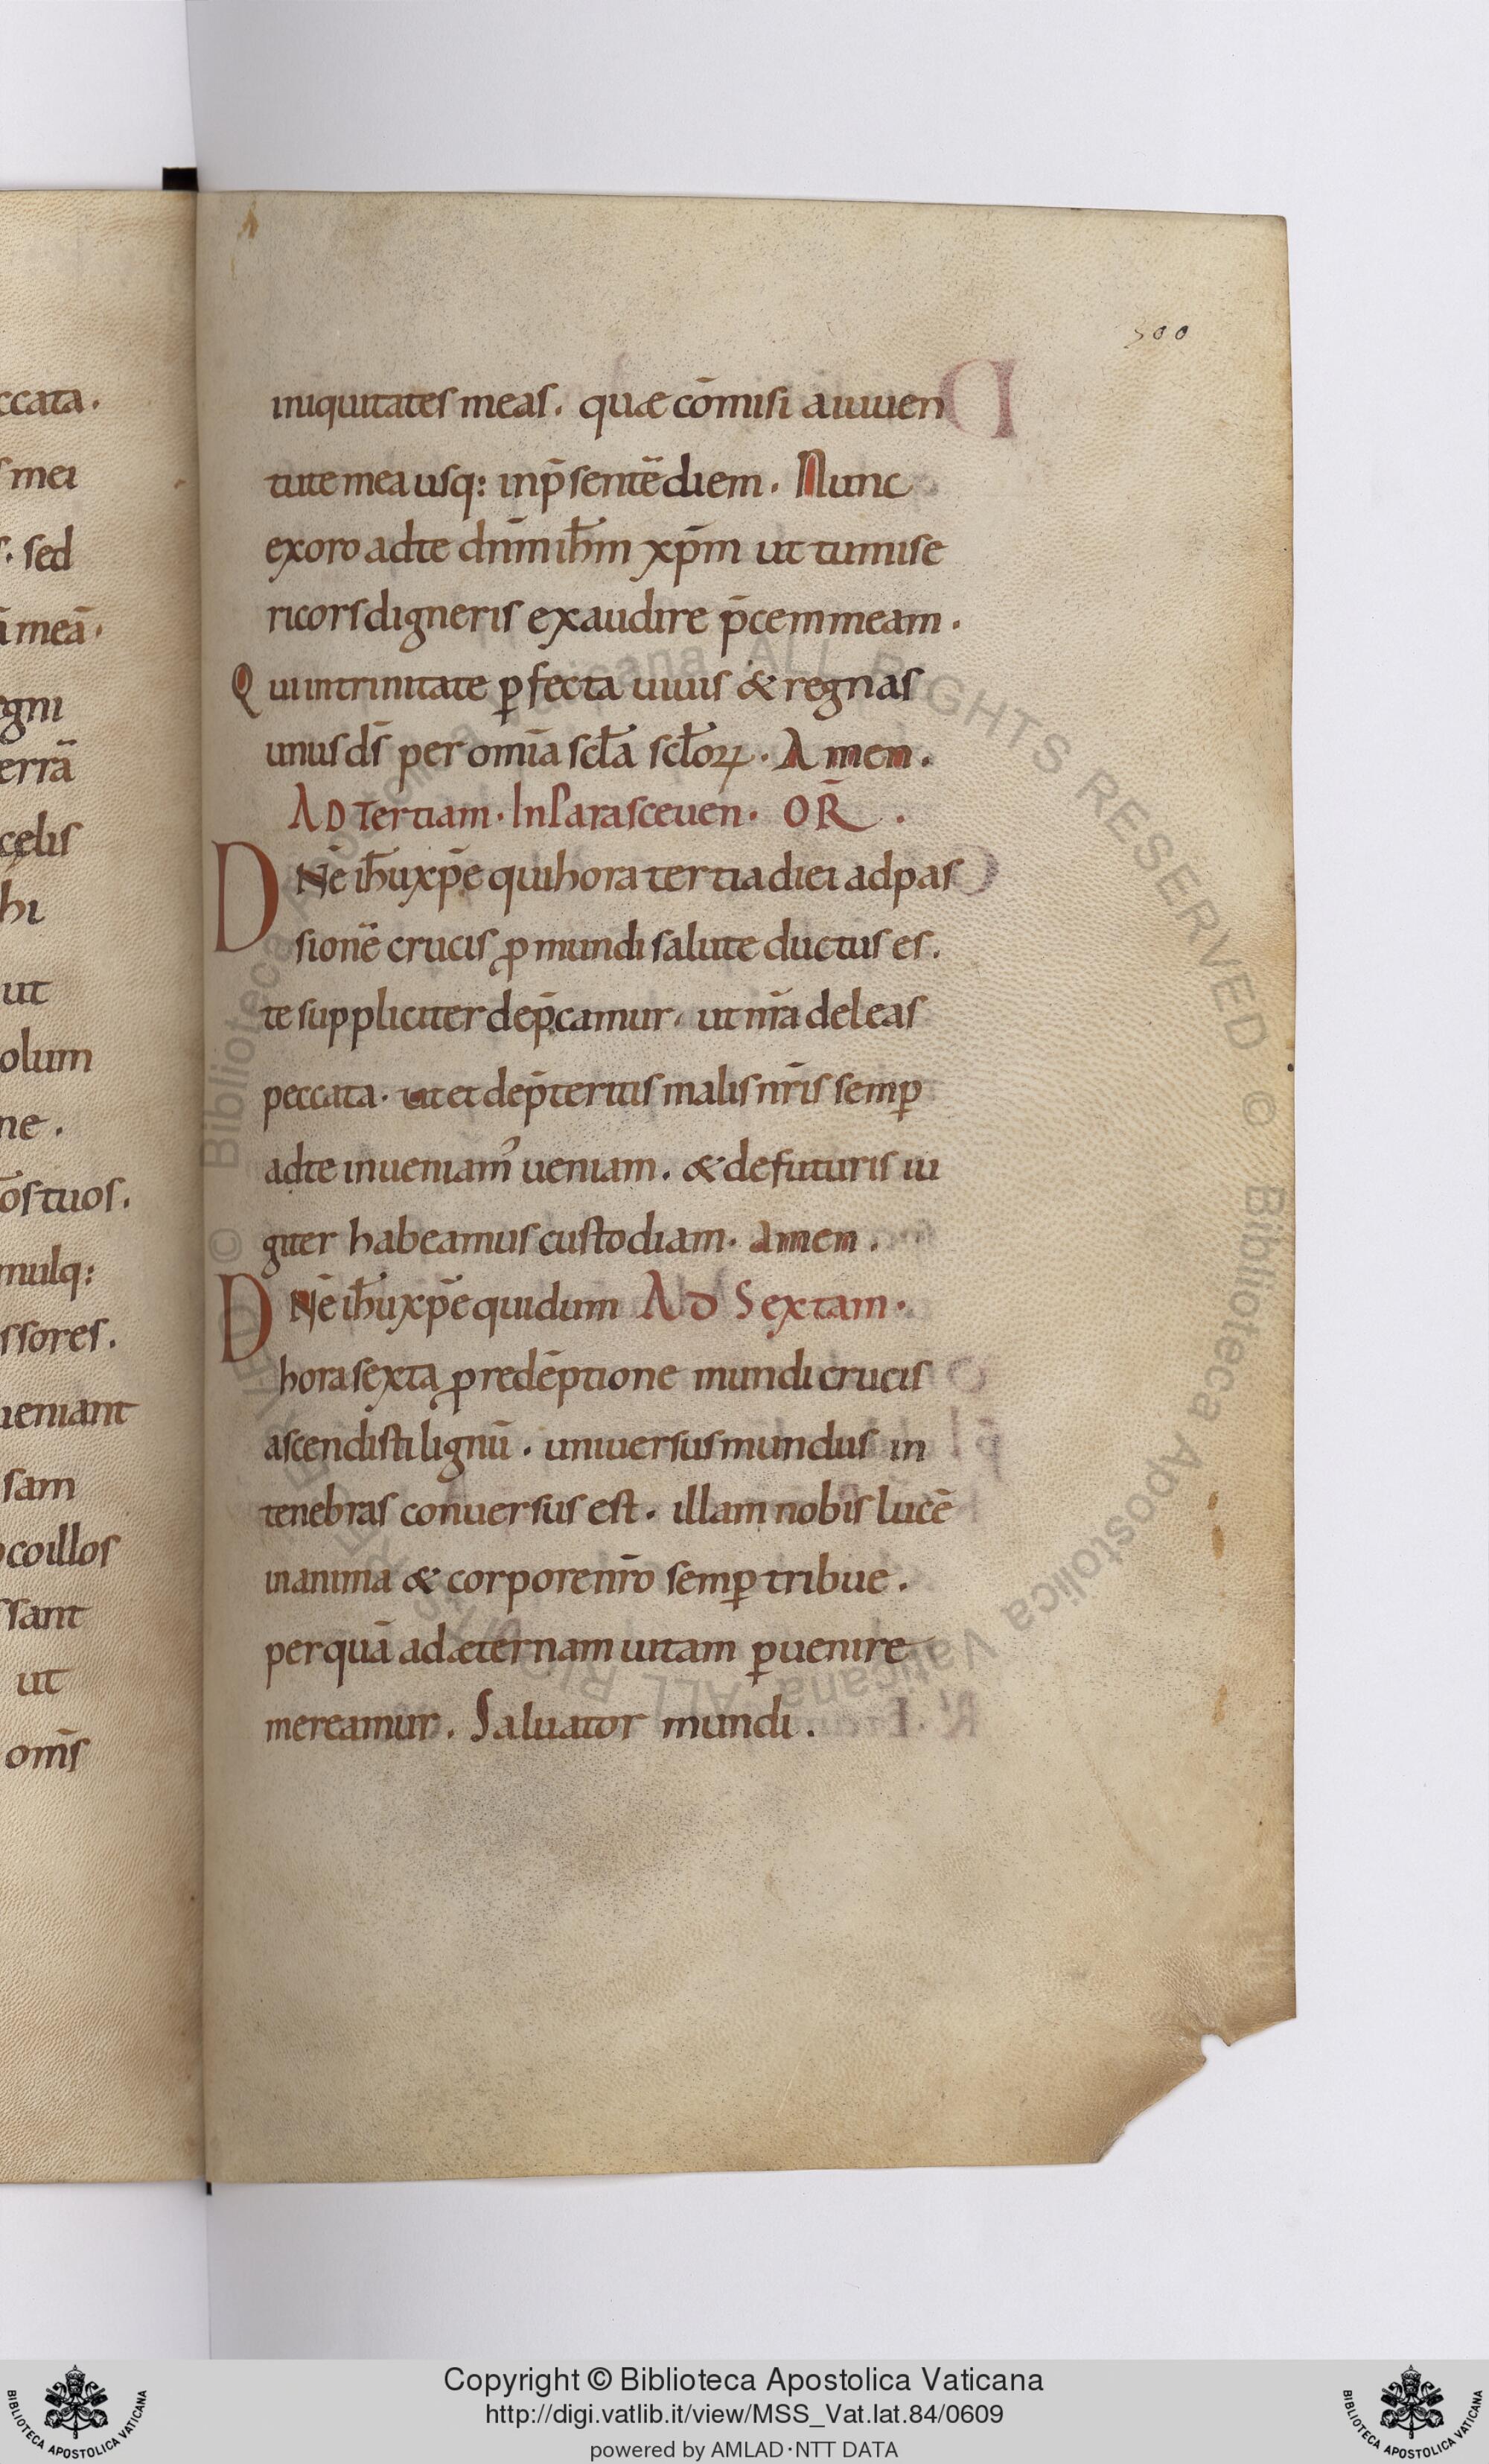 ccata.
s mei
s. sed
ā meā.
egni
errā
celis
hi
ut
olum
ne.
os tuos.
mulq:
ssores.
ueniant
sam
coillos
ssant
ut
om̄s
300
iniquitates meas. quæ cōmisi a iuuen
tute mea usq: in p̄sentē diem. Nunc
exoro ad te dn̄m ih̄m xp̄m ut tu mise
ricors digneris exaudire p̄cem meam.
Qui in trinitate ꝑfecta uiuis & regnas
unus ds̄ per om̄ia scl̄a scl̄oꝝ. Amen.
AD Tertiam. In Parasceuen. OR̄.
DN̄e ih̄u xp̄e qui hora tertia diei ad pas
sionē crucis ꝓ mundi salute ductus es.
te suppliciter dep̄camur. ut nr̄a deleas
peccata. ut et de p̄teritis malis nr̄is semꝑ
ad te inueniam' ueniam. & de futuris iu
giter habeamus custodiam. Amen.
DN̄e ih̄u xp̄e qui dum AD Sextam.
hora sexta ꝓ redēptione mundi crucis
ascendisti lignū. uniuersus mundus in
tenebras conuersus est. illam nobis lucē
in anima & corpore nr̄o semꝑ tribue.
per quā ad æternam uitam ꝑuenire
mereamur. Saluator mundi.
© Biblioteca Apostolica Vaticana ALL RIGHTS RESERVED © Biblioteca Apostolica Vaticana ALL RIGHTS RESERVED
Copyright © Biblioteca Apostolica Vaticana
http://digi.vatlib.it/view/MSS_Vat.lat.84/0609
powered by AMLAD·NTT DATA
BIBLIOTECA APOSTOLICA VATICANA
BIBLIOTECA APOSTOLICA VATICANA